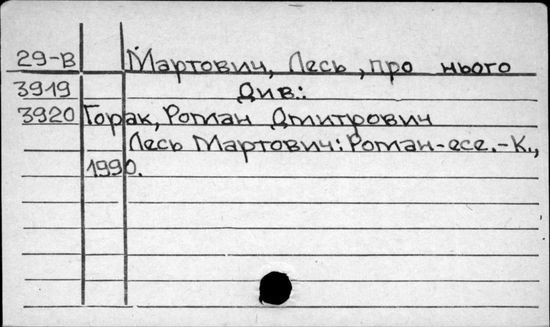 29-В Мартович, Лесь, про нього
3919 Див.:
3920 Горак, Роман Дмитрович
Лесь Мартович: Роман-есе.-К.,
1990.